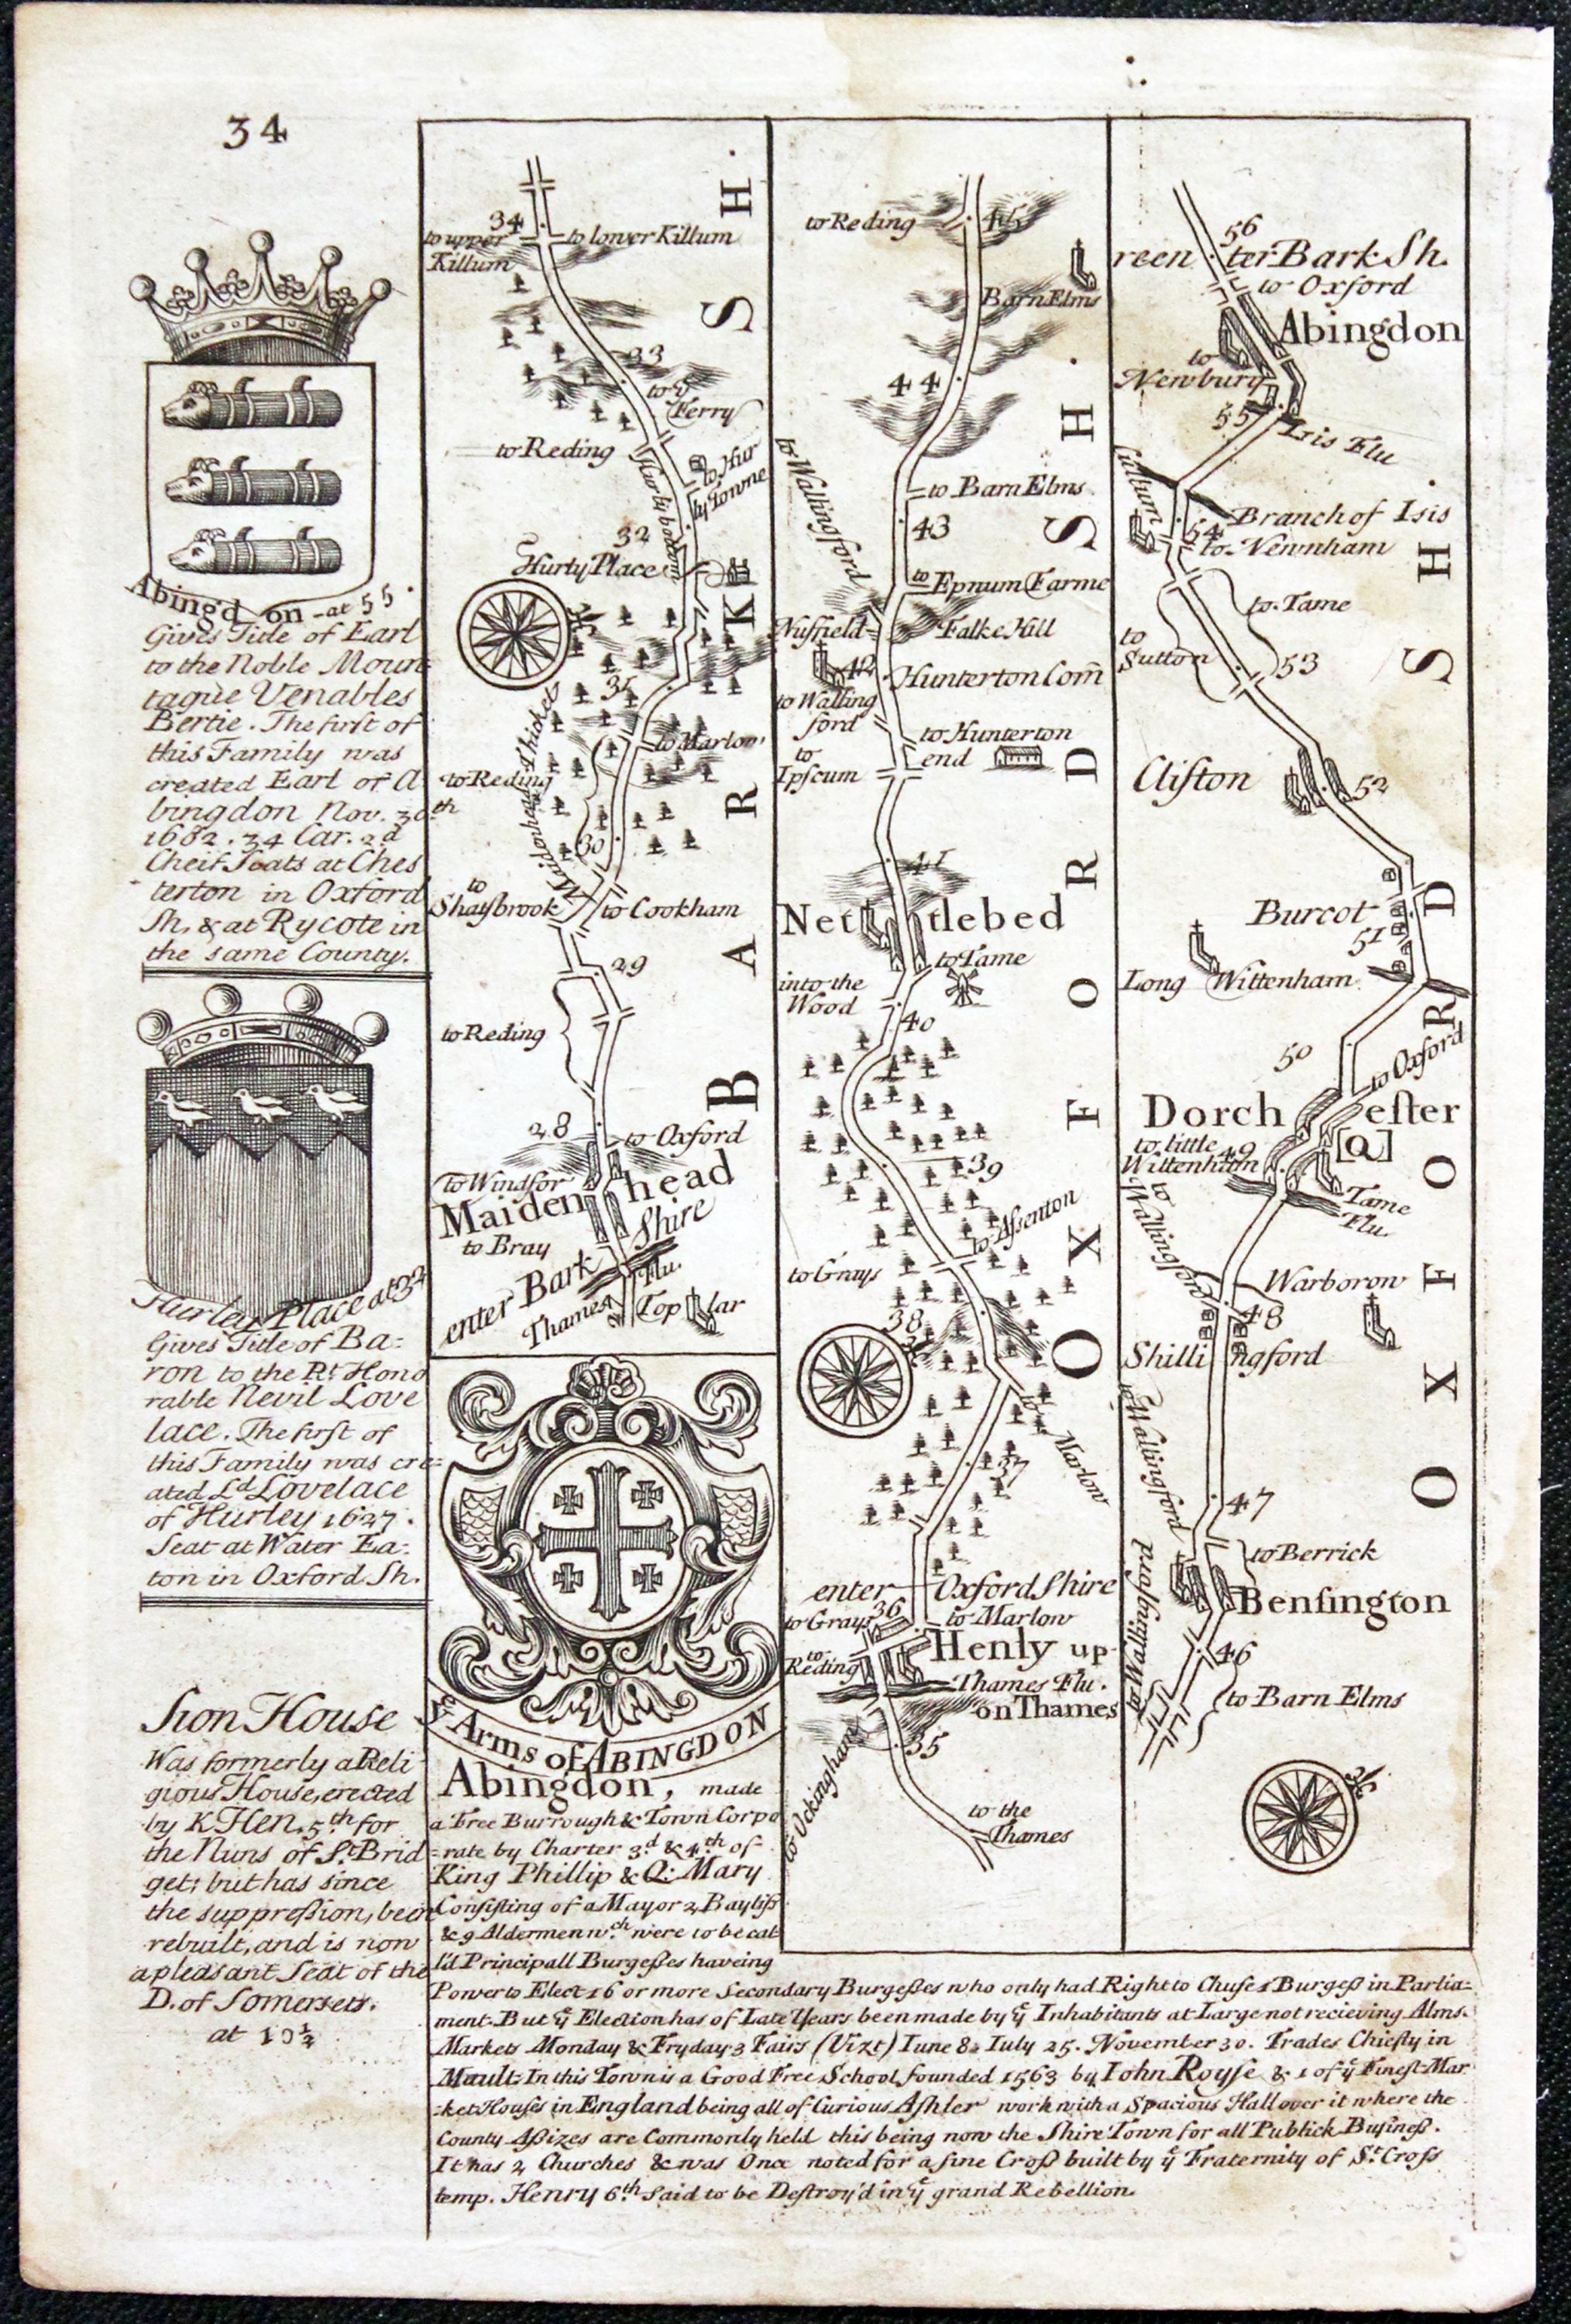 34
Abing'd on - at 55.
Gives Title of Earl
to the Noble Moun
tague Venables
Bertie. The first of
this Family was
created Earl of A
bingdon Nov. 30th
1682. 34 Car. 2d
Cheif Seats at Ches
terton in Oxford
Sh. & at Rycote in
the same County.
Hurley Place at 32
Gives Title of Ba:
ron to the Rt. Hono
rable Nevil Love
lace. The first of
this Family was cre=
ated Ld. Lovelace
of Hurley 1627.
Seat at Water Ea:
ton in Oxford Sh.
Sion House
Was formerly a Reli
gious House, erected
by K Hen. 5th for
the Nuns of St. Brid
get; but has since
the suppression, been
rebuilt, and is now
a pleasant Seat of the
D. of Somersett.
at 10½
34
to upper
Killum
to lower Killum
33
to ye
Ferry
to Reding
to Hur
ly Towne
Hurly bottom
32
Hurly Place
31
Maidenhead Thicket
to Marlow
to Reding
30
to
Shaysbrook
to Cookham
29
to Reding
28
to Oxford
to Windsor
Maiden head
to Bray
enter Bark Shire
Thames Flu.
Top lar
BARK SH.
ye Arms of ABINGDON
to Reding
45
Barn Elms
44
to Wallingford
to Barn Elms
43
to
Epnum Farme
Nuffield
Falke Hill
42
Hunterton Com̄
to Walling
ford
to Hunterton
end
to
Ipscum
41
Net tlebed
to Tame
into the
Wood
40
39
to Assenton
to Grays
38
to Marlow
37
enter Oxford Shire
36
to Grays
to Marlow
Henly up
to
Reding
Thames Flu.
on Thames
35
to Ockingham
to the
Thames
OXFORD SH.
56
reen ter Bark Sh.
to Oxford
Abingdon
to
Newbury
55
Isis Flu
Cullum
Branch of Isis
54
to Newnham
to Tame
to
Sutton
53
Clifton
52
Burcot
51
Long Wittenham
50
to Oxford
Dorch ester
[a]
to little
Wittenham
49
Tame
Flu.
to
Wallingford
Warborow
48
Shilli ngford
to Wallingford
47
to Berrick
Bensington
to Wallingford
46
to Barn Elms
OXFORD SH.
Abingdon, made
a Free Burrough & Town Corpo
=rate by Charter 3d & 4th of
King Phillip & Q: Mary
Consisting of a Mayor 2 Bayliss
& 9 Aldermen wch. were to be cal
l'd Principall Burgesses haveing
Power to Elect 16 or more Secondary Burgesses who only had Right to Chuse 1 Burgess in Parlia=
ment. But ye Election has of Late Years been made by ye Inhabitants at Large not recieving Alms.
Markets Monday & Fryday 3 Fairs (Vizt) Iune 8. Iuly 25. November 30. Trades Chiefly in
Mault. In this Town is a Good Free School founded 1563 by Iohn Royse & 1 of ye Finest Mar
=ket Houses in England being all of Curious Ashler work with a Spacious Hall over it where the
County Assizes are Commonly held this being now the Shire Town for all Publick Business.
It has 2 Churches & was Once noted for a fine Cross built by ye Fraternity of St. Cross
temp. Henry 6th Said to be Destroy'd in ye grand Rebellion.